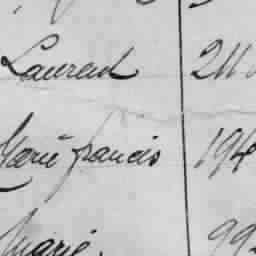 Laurent 211
Marie francis 194
Marie. 99